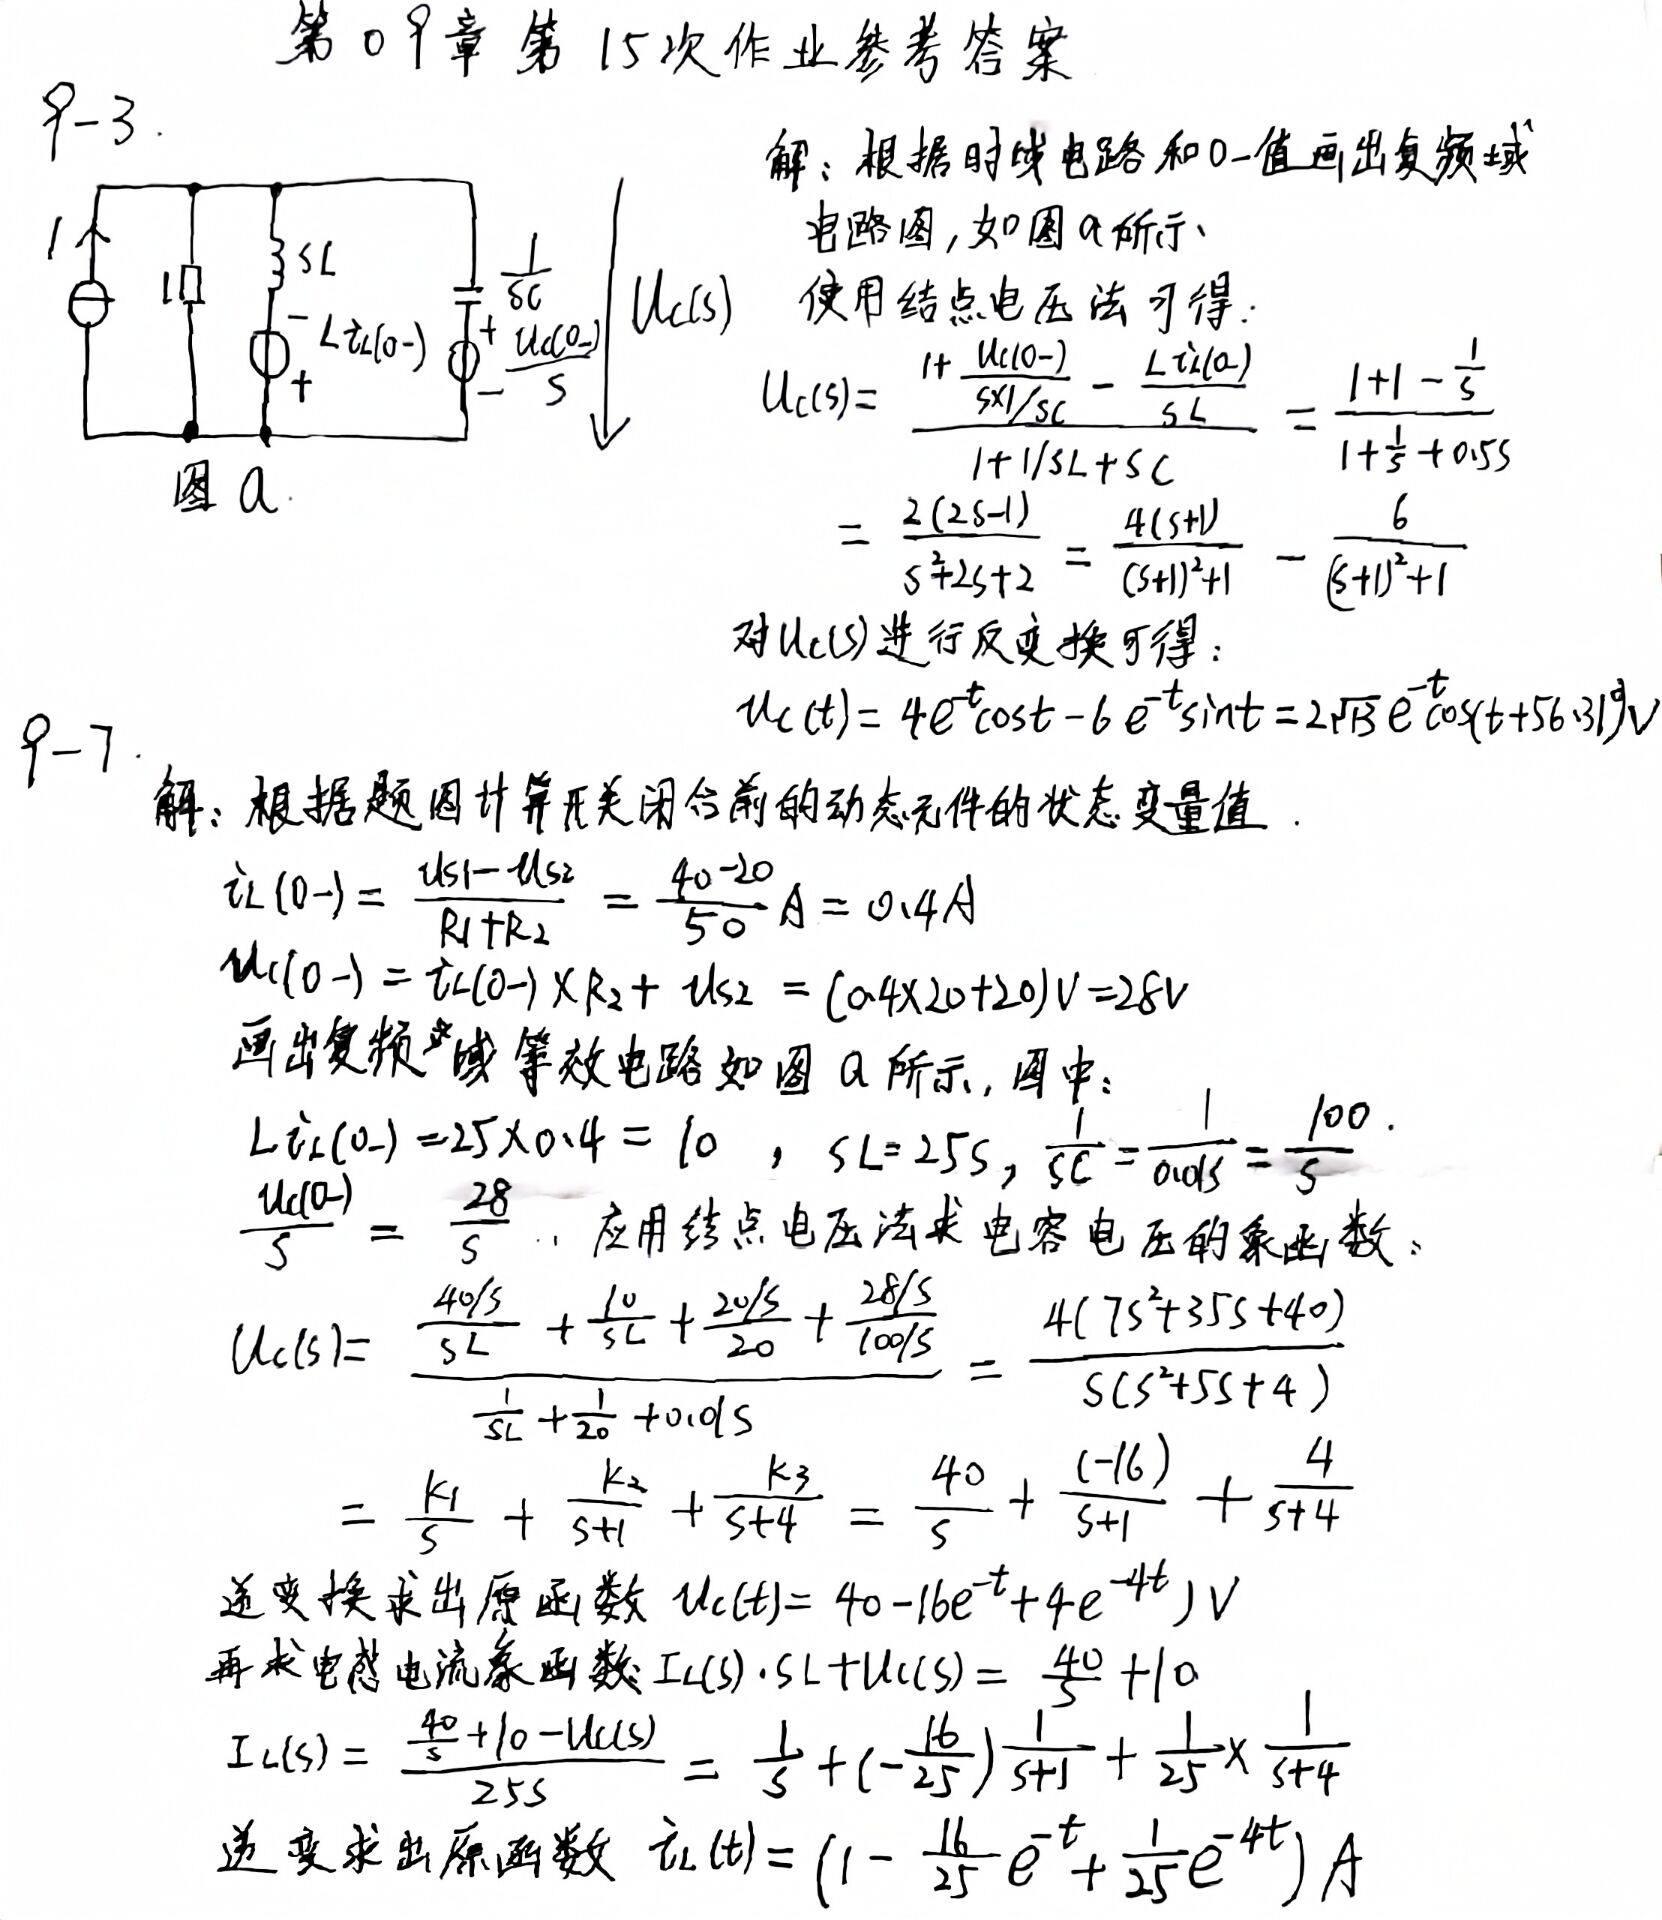 第09章第15次作业参考答案
9-3.
解：根据时域电路和0-值画出复频域
电路图，如图a所示、
使用结点电压法可得：
I
1
SL
- Li_L(0-) +
1/SC
+ Uc(0-)/S -
Uc(s)
图a.
Uc(s)= (1+ Uc(0-)/(S×1/SC) - Li_L(0-)/SL)/(1+1/SL+SC) = (1+1-1/S)/(1+1/S+0.5S)
= 2(2S-1)/(S²+2S+2) = 4(S+1)/((S+1)²+1) - 6/((S+1)²+1)
对Uc(s)进行反变换可得：
uc(t)=4e^{-t}cost-6e^{-t}sint=2√13e^{-t}cos(t+56.31°)V
9-7.
解：根据题图计算开关闭合前的动态元件的状态变量值.
i_L(0-)= (us1-us2)/(R1+R2) = (40-20)/50 A=0.4A
uc(0-)=i_L(0-)×R2+us2=(0.4×20+20)V=28V
画出复频域等效电路如图a所示，图中：
Li_L(0-)=25×0.4=10，SL=25S，1/SC=1/0.01S=100/S.
uc(0-)/S = 28/S .. 应用结点电压法求电容电压的象函数：
Uc(s)= ((40/S)/SL + 10/SL + (20/S)/20 + (28/S)/(100/S))/(1/SL+1/20+0.01S) = 4(7S²+35S+40)/(S(S²+5S+4))
= K1/S + K2/(S+1) + K3/(S+4) = 40/S + (-16)/(S+1) + 4/(S+4)
逆变换求出原函数 uc(t)=40-16e^{-t}+4e^{-4t})V
再求电感电流象函数：I_L(s)·SL+Uc(s)=40/S+10
I_L(s)= (40/S+10-Uc(s))/25S = 1/S+(-16/25)1/(S+1)+1/25×1/(S+4)
逆变求出原函数 i_L(t)=(1-16/25e^{-t}+1/25e^{-4t})A